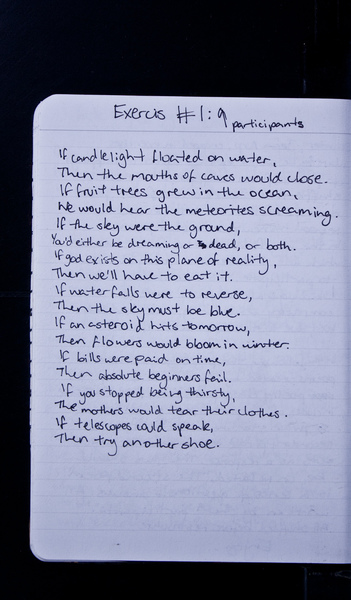 Exercis #1: 9 participants
If candlelight floated on water,
Then the mouths of caves would close.
If fruit trees grew in the ocean,
We would hear the meteorites screaming.
If the sky were the ground,
You'd either be dreaming or dead, or both.
If god exists on this plane of reality,
Then we'll have to eat it.
If waterfalls were to reverse,
Then the sky must be blue.
If an asteroid hits tomorrow,
Then flowers would bloom in winter.
If bills were paid on time,
Then absolute beginners fail.
If you stopped being thirsty,
The mothers would tear their clothes.
If telescopes could speak,
Then try another shoe.